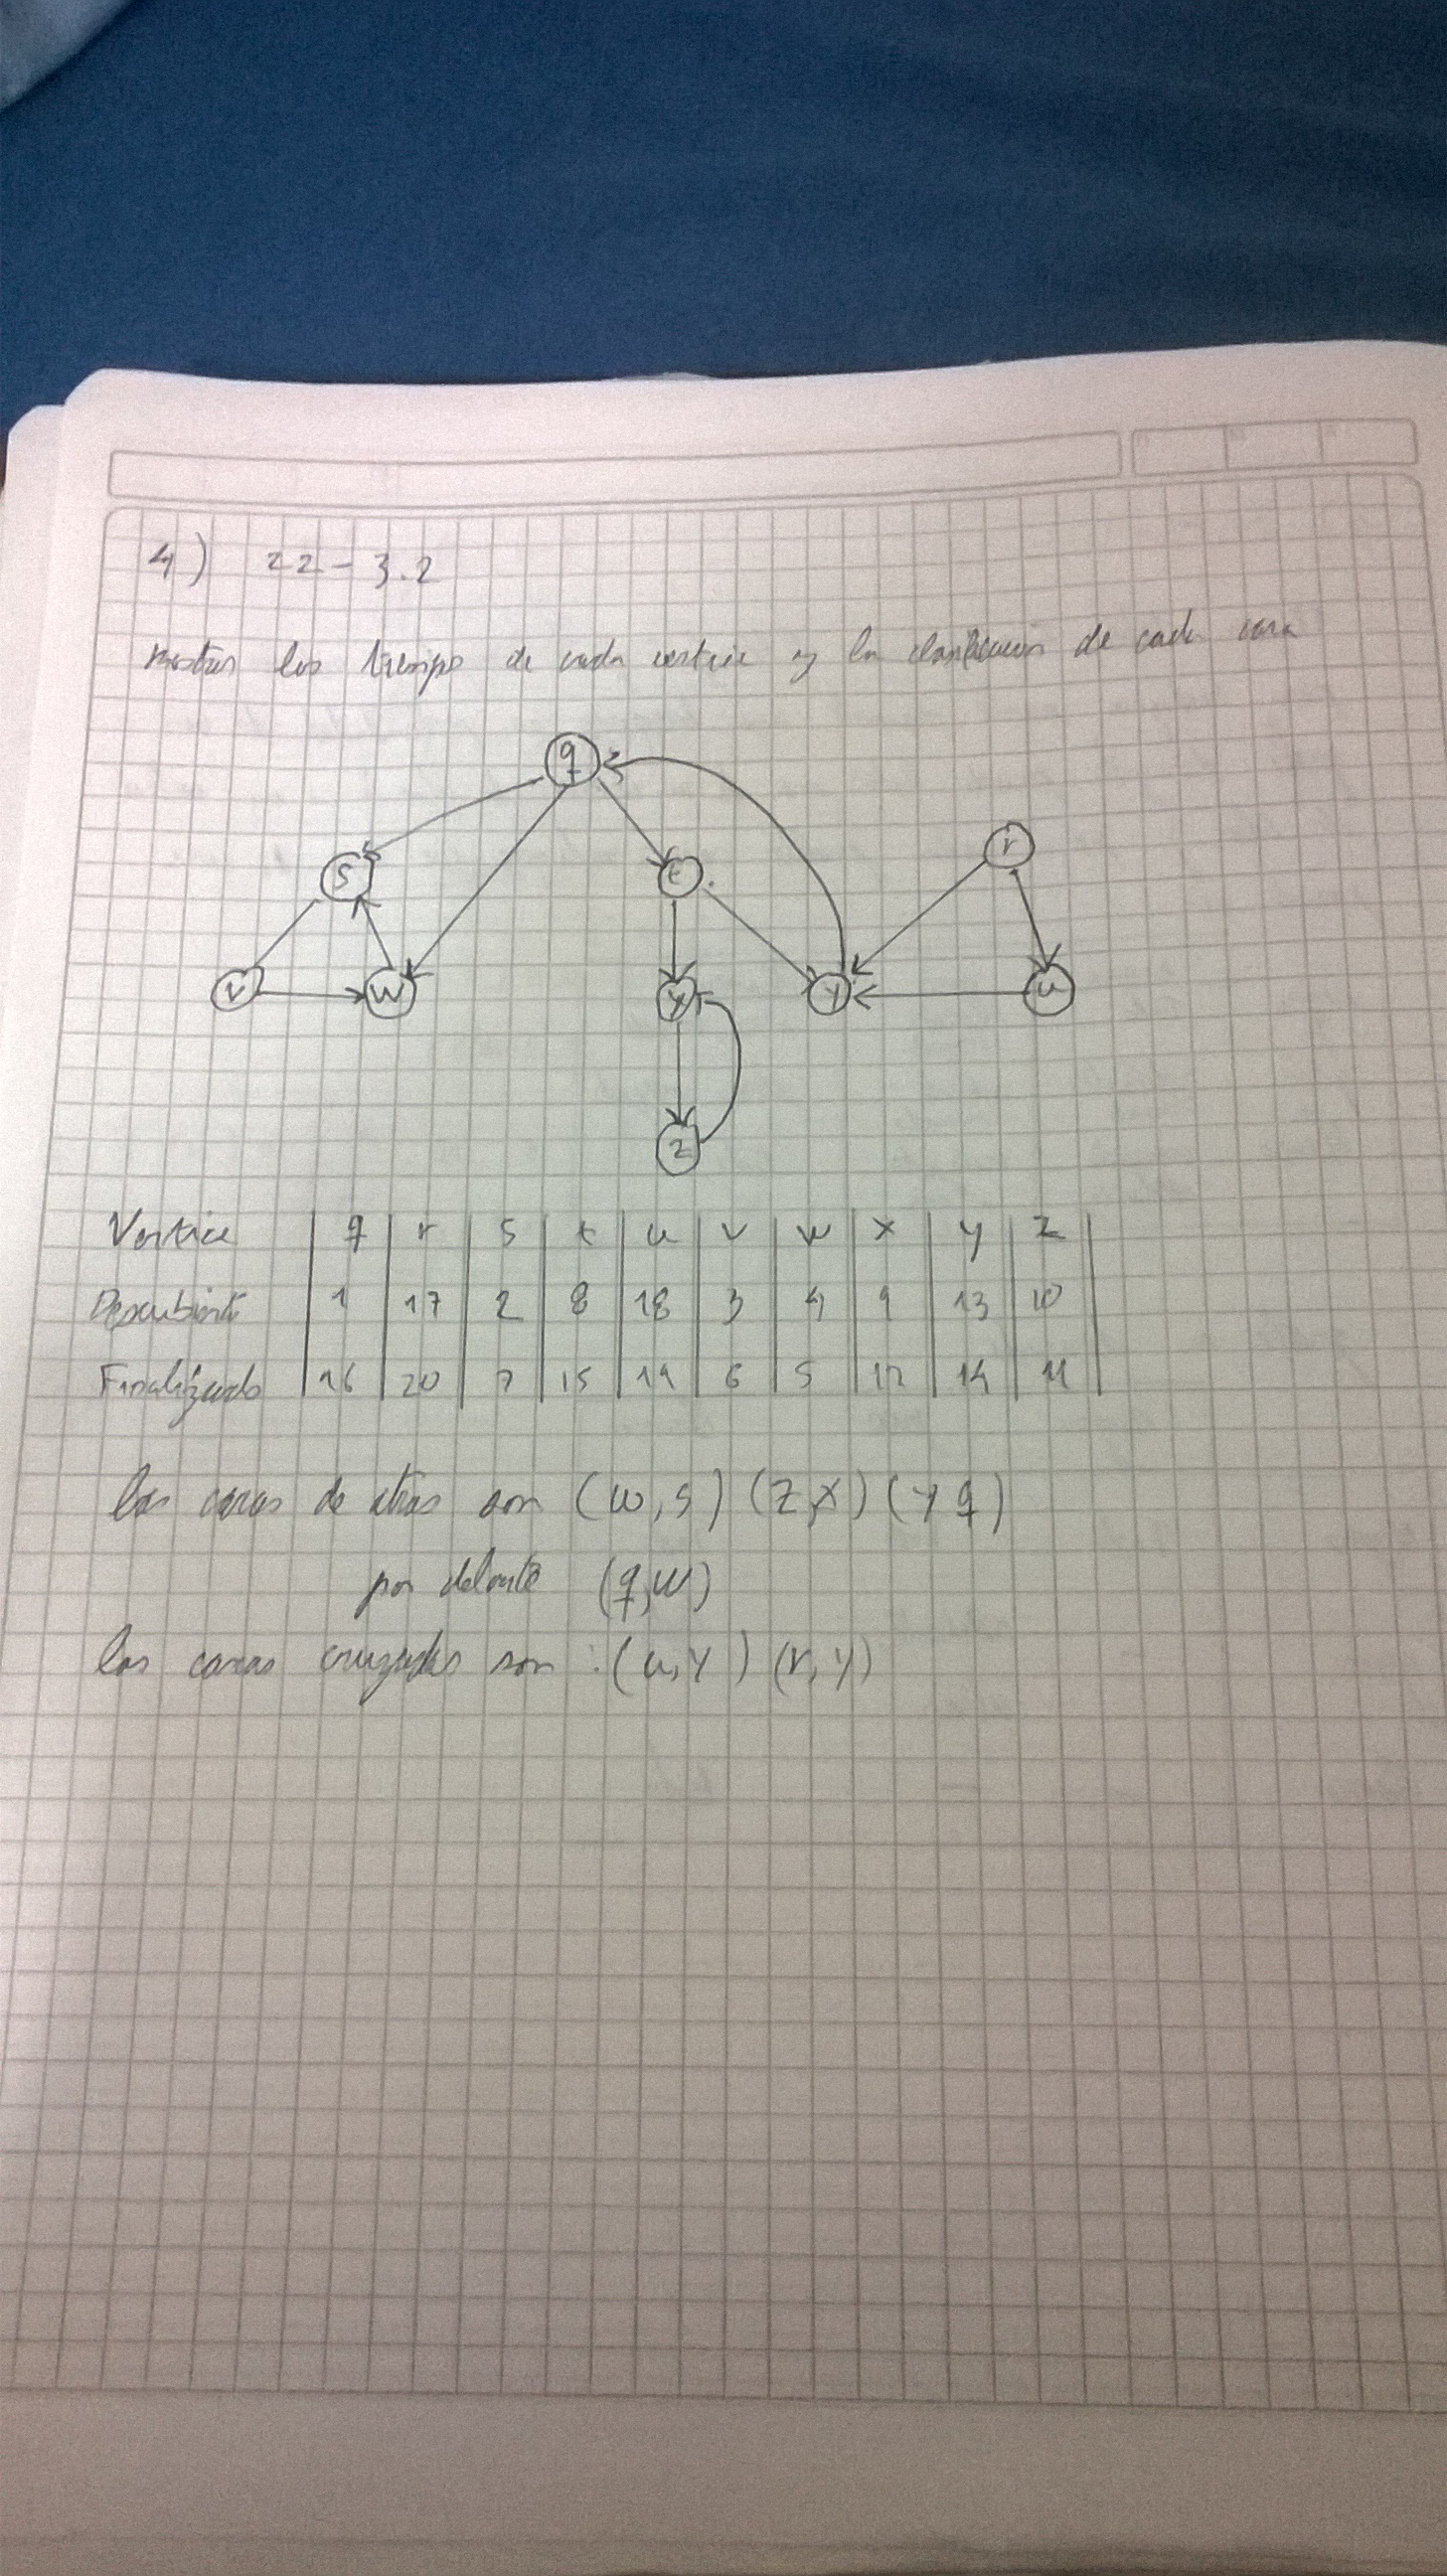 4) 22-3.2
mostrar los tiempo de cada vertice y la clasificacion de cada cara
q
s t r
v w x y u
z
Vertice q r s t u v w x y z
Descubierto 1 17 2 8 18 3 4 9 13 10
Finalizado 16 20 7 15 19 6 5 12 14 11
las caras de atras son (w,s) (z,x) (y q)
por delante (q,w)
las caras cruzadas son : (u,y) (r,y)